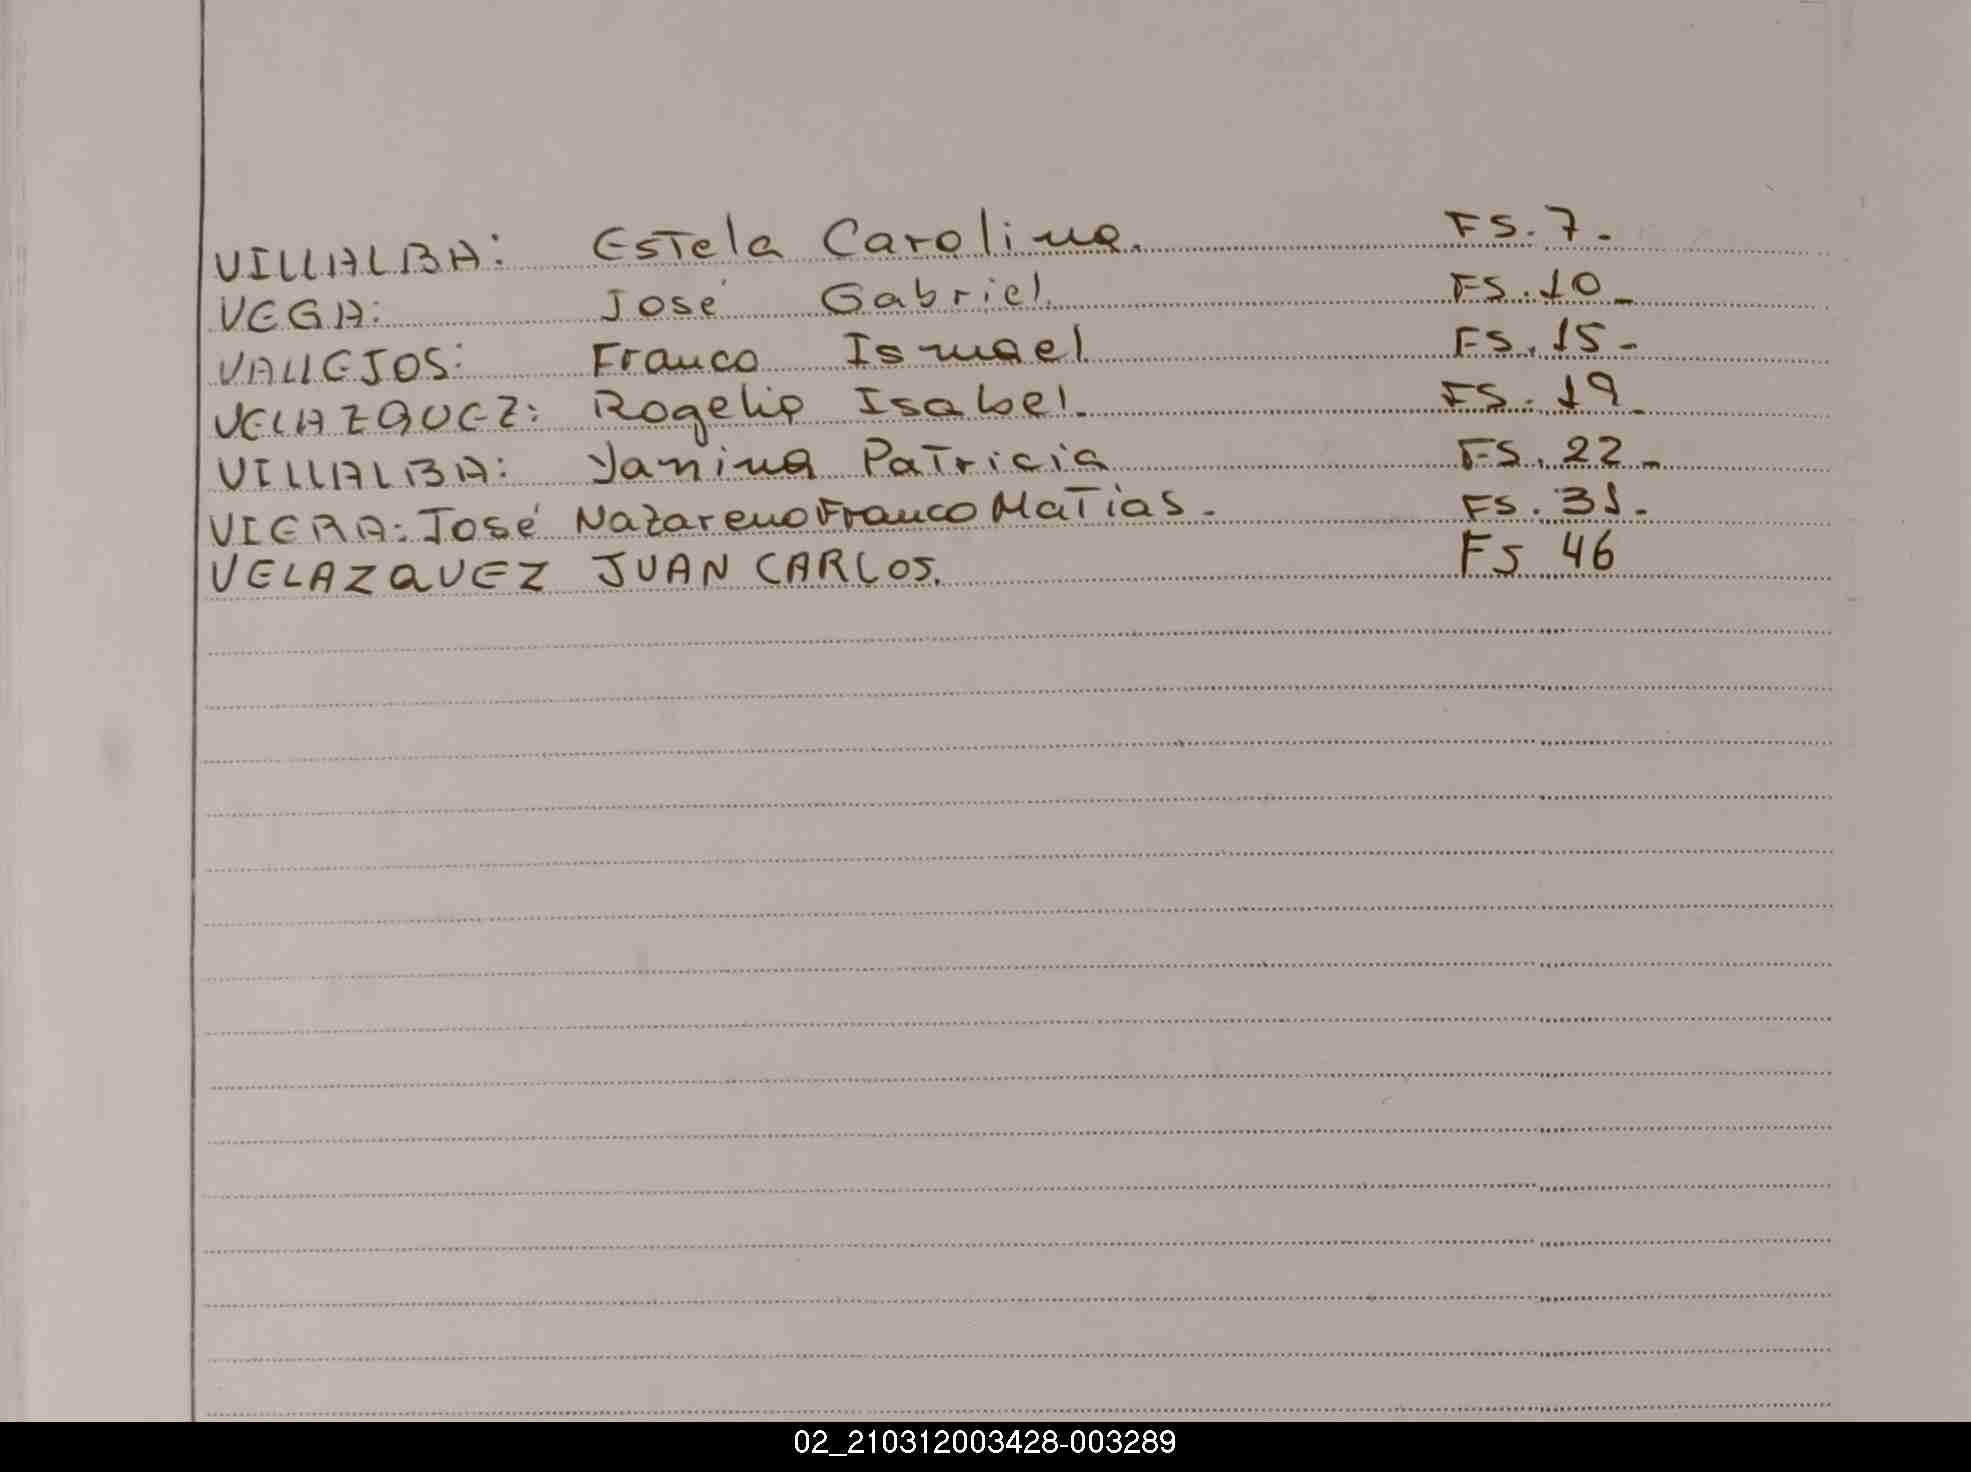 VILLALBA: Estela Carolina. FS. 7.-
VEGA: José Gabriel. FS. 10-
VALLEJOS: Franco Ismael FS. 15-
VELAZQUEZ: Rogelio Isabel. FS. 19-
VILLALBA: Yanina Patricia FS. 22-
VIERA: José Nazareno Franco Matías. FS. 31.
VELAZQUEZ JUAN CARLOS. FS 46
02_210312003428-003289